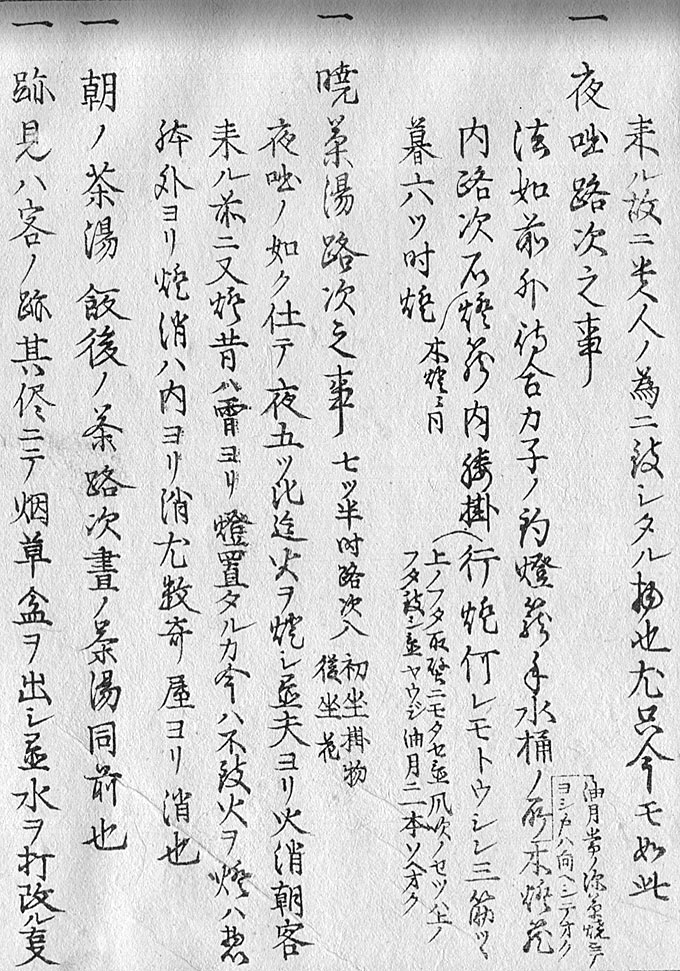 来ル故ニ貴人ノ為ニ致シタル物也尤只今モ如此
一 夜咄路次之事
法如前外待合カ子ノ釣燈籠手水桶ノ所ニ木燈籠
油月常ノ 茶碗ニテ
ヨシ戸ハ向ヘシテオク
内路次石燈籠内腰掛行燈何レモトウシン三筋ツヽ
上ノフタ取壁ニモタセ置爪 ノセツハ上ノ
フタ致シ置ヤウジ油月ニ二本ソヘオク
暮六ツ时燈 木燈ニ日
一 暁茶湯路次之事 七ツ半时路次入 初坐掛物
後坐花
夜咄ノ如ク仕テ夜五ツ比迄火ヲ燈シ置夫ヨリ火消朝客
来ル前ニ又燈昔ハ宵ヨリ燈置タルカ今ハ不致火ヲ燈ハ惣
体外ヨリ燈消ハ内ヨリ消尤数奇屋ヨリ消也
一 朝ノ茶湯飯後ノ茶路次晝ノ茶湯同前也
一 跡見ハ客ノ跡其侭ニテ烟草盆ヲ出シ置水ヲ打改ル